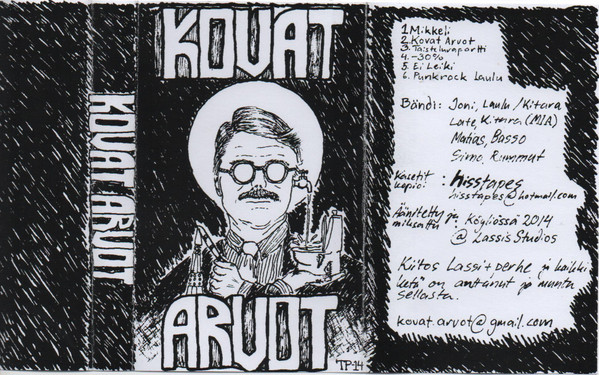 KOVAT ARVOT
KOVAT
ARVOT
TP-14
1. Mikkeli
2. Kovat Arvot
3. Taisteluraportti
4. -30%
5. Ei Leiki
6. Punkrock Laulu
Bändi: Joni, Laulu/Kitara
Late, Kitara (MIA)
Matias, Basso
Simo, Rummut
Kasetit kopioi: hisstapes
hisstapes@hotmail.com
Äänitetty ja miksattu: Köyliössä 2014
@ Lassis Studios
Kiitos Lassi + perhe ja kaikki
ketä on auttanut ja muuta
sellasta.
kovat.arvot@gmail.com